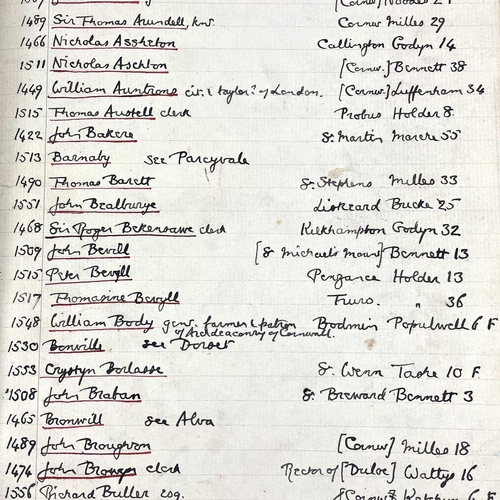 1489 Sir Thomas Arundell, knt. Cornw. Milles 29
1466 Nicholas Assheton Callington Godyn 14
1511 Nicholas Aschton [Cornw.] Bennett 38
1449 William Auntrons cit. & taylor? of London. [Cornw.] Luffenham 34
1515 Thomas Austell clerk Probus Holder 8
1422 John Bakere S. Martin Marche 55
1513 Barnaby see Parcyvale
1490 Thomas Barett S. Stephens Milles 33
1551 John Bealburye Liskeard Bucke 25
1468 Sir Roger Bekensawe clerk Kilkhampton Godyn 32
1509 John Bevill [S Michael's Mount] Bennett 13
1515 Peter Bevyll Penzance Holder 13
1517 Thomasine Bevyll Truro. " 36
1548 William Body gent. farmer & patron Bodmin Populwell 6 F
of Archdeaconry of Cornwall.
1530 Bonville see Dorset
1553 Crystyn Borlasse S. Wenn Tashe 10 F
1508 John Braban S. Breward Bennett 3
1465 Bronwill see Alva
1489 John Broughton [Cornw] Milles 18
1474 John clerk Rector of [Duloe] Wattys 16
1556 Richard Buller esq. F